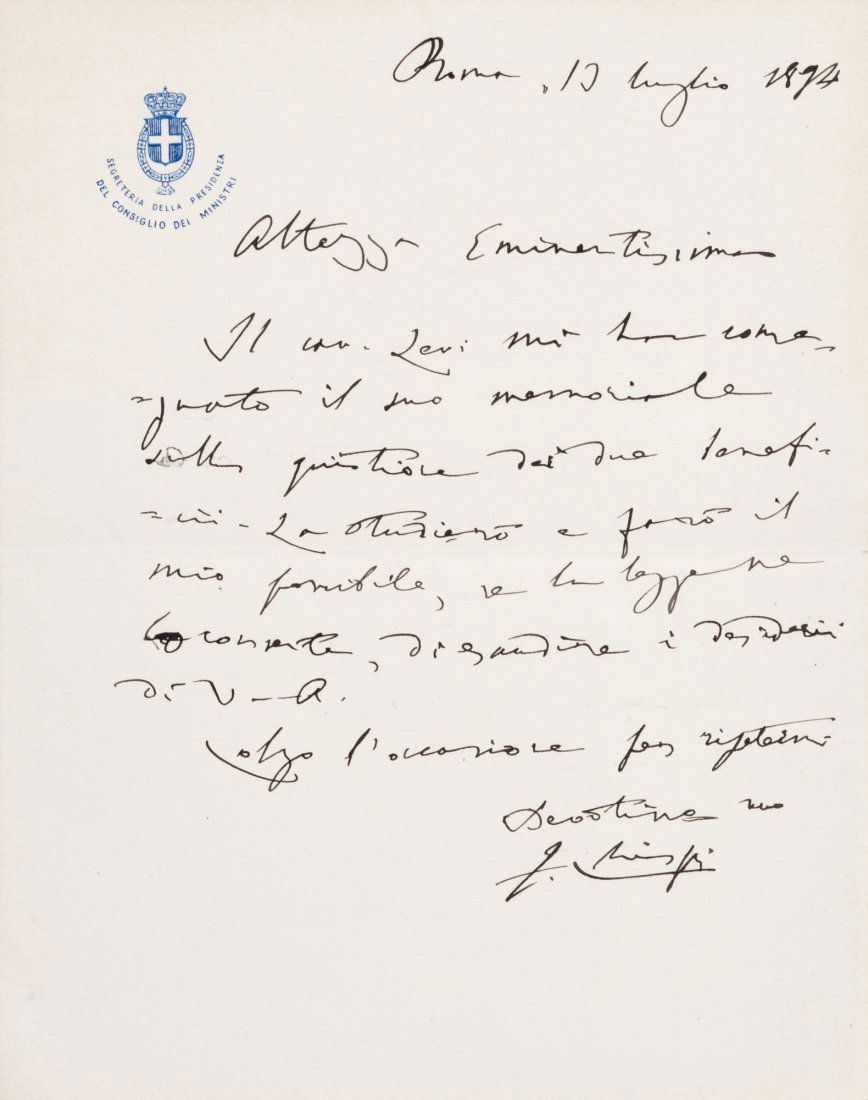 Roma, 13 luglio 1894
SEGRETERIA DELLA PRESIDENZA
DEL CONSIGLIO DEI MINISTRI
Altezza Eminentissima
Il cav. Levi mi ha conse-
=gnato il suo memoriale
sulla quistione dei due benefi-
=cii. La studierò e farò il
mio possibile, se la legge me
lo consente, di esaudire i desiderii
di V. A.
Colgo l'occasione per ripetermi
Devotissimo suo
F. Crispi